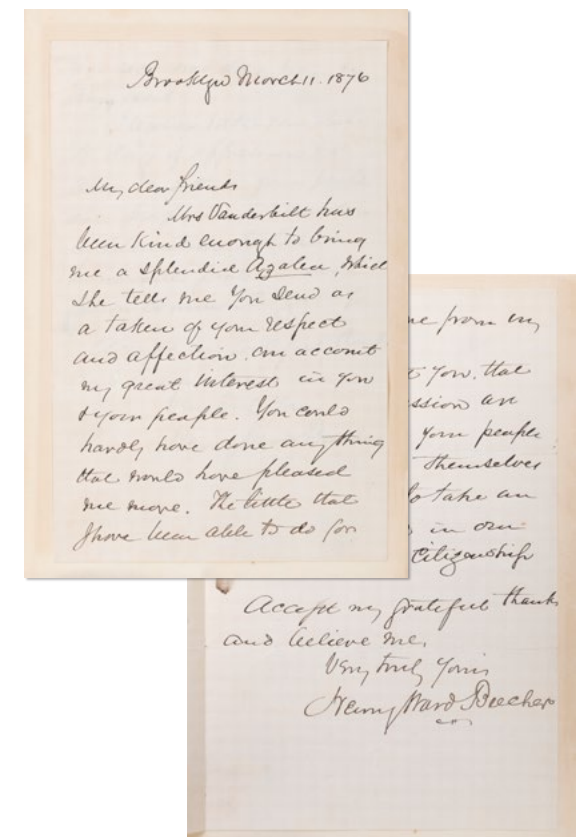 Brooklyn March 11. 1876
My dear friends
Mrs Vanderbilt has
been kind enough to bring
me a splendid Azalea, which
she tells me you send as
a token of your respect
and affection. on account
my great interest in you
& your people. You could
hardly have done anything
that would have pleased
me more. The little that
I have been able to do for
me from my
you. that
ssion an
your people
themselves
to take an
in our
citizenship
Accept my grateful thanks
and believe me,
Very truly yours
Henry Ward Beecher